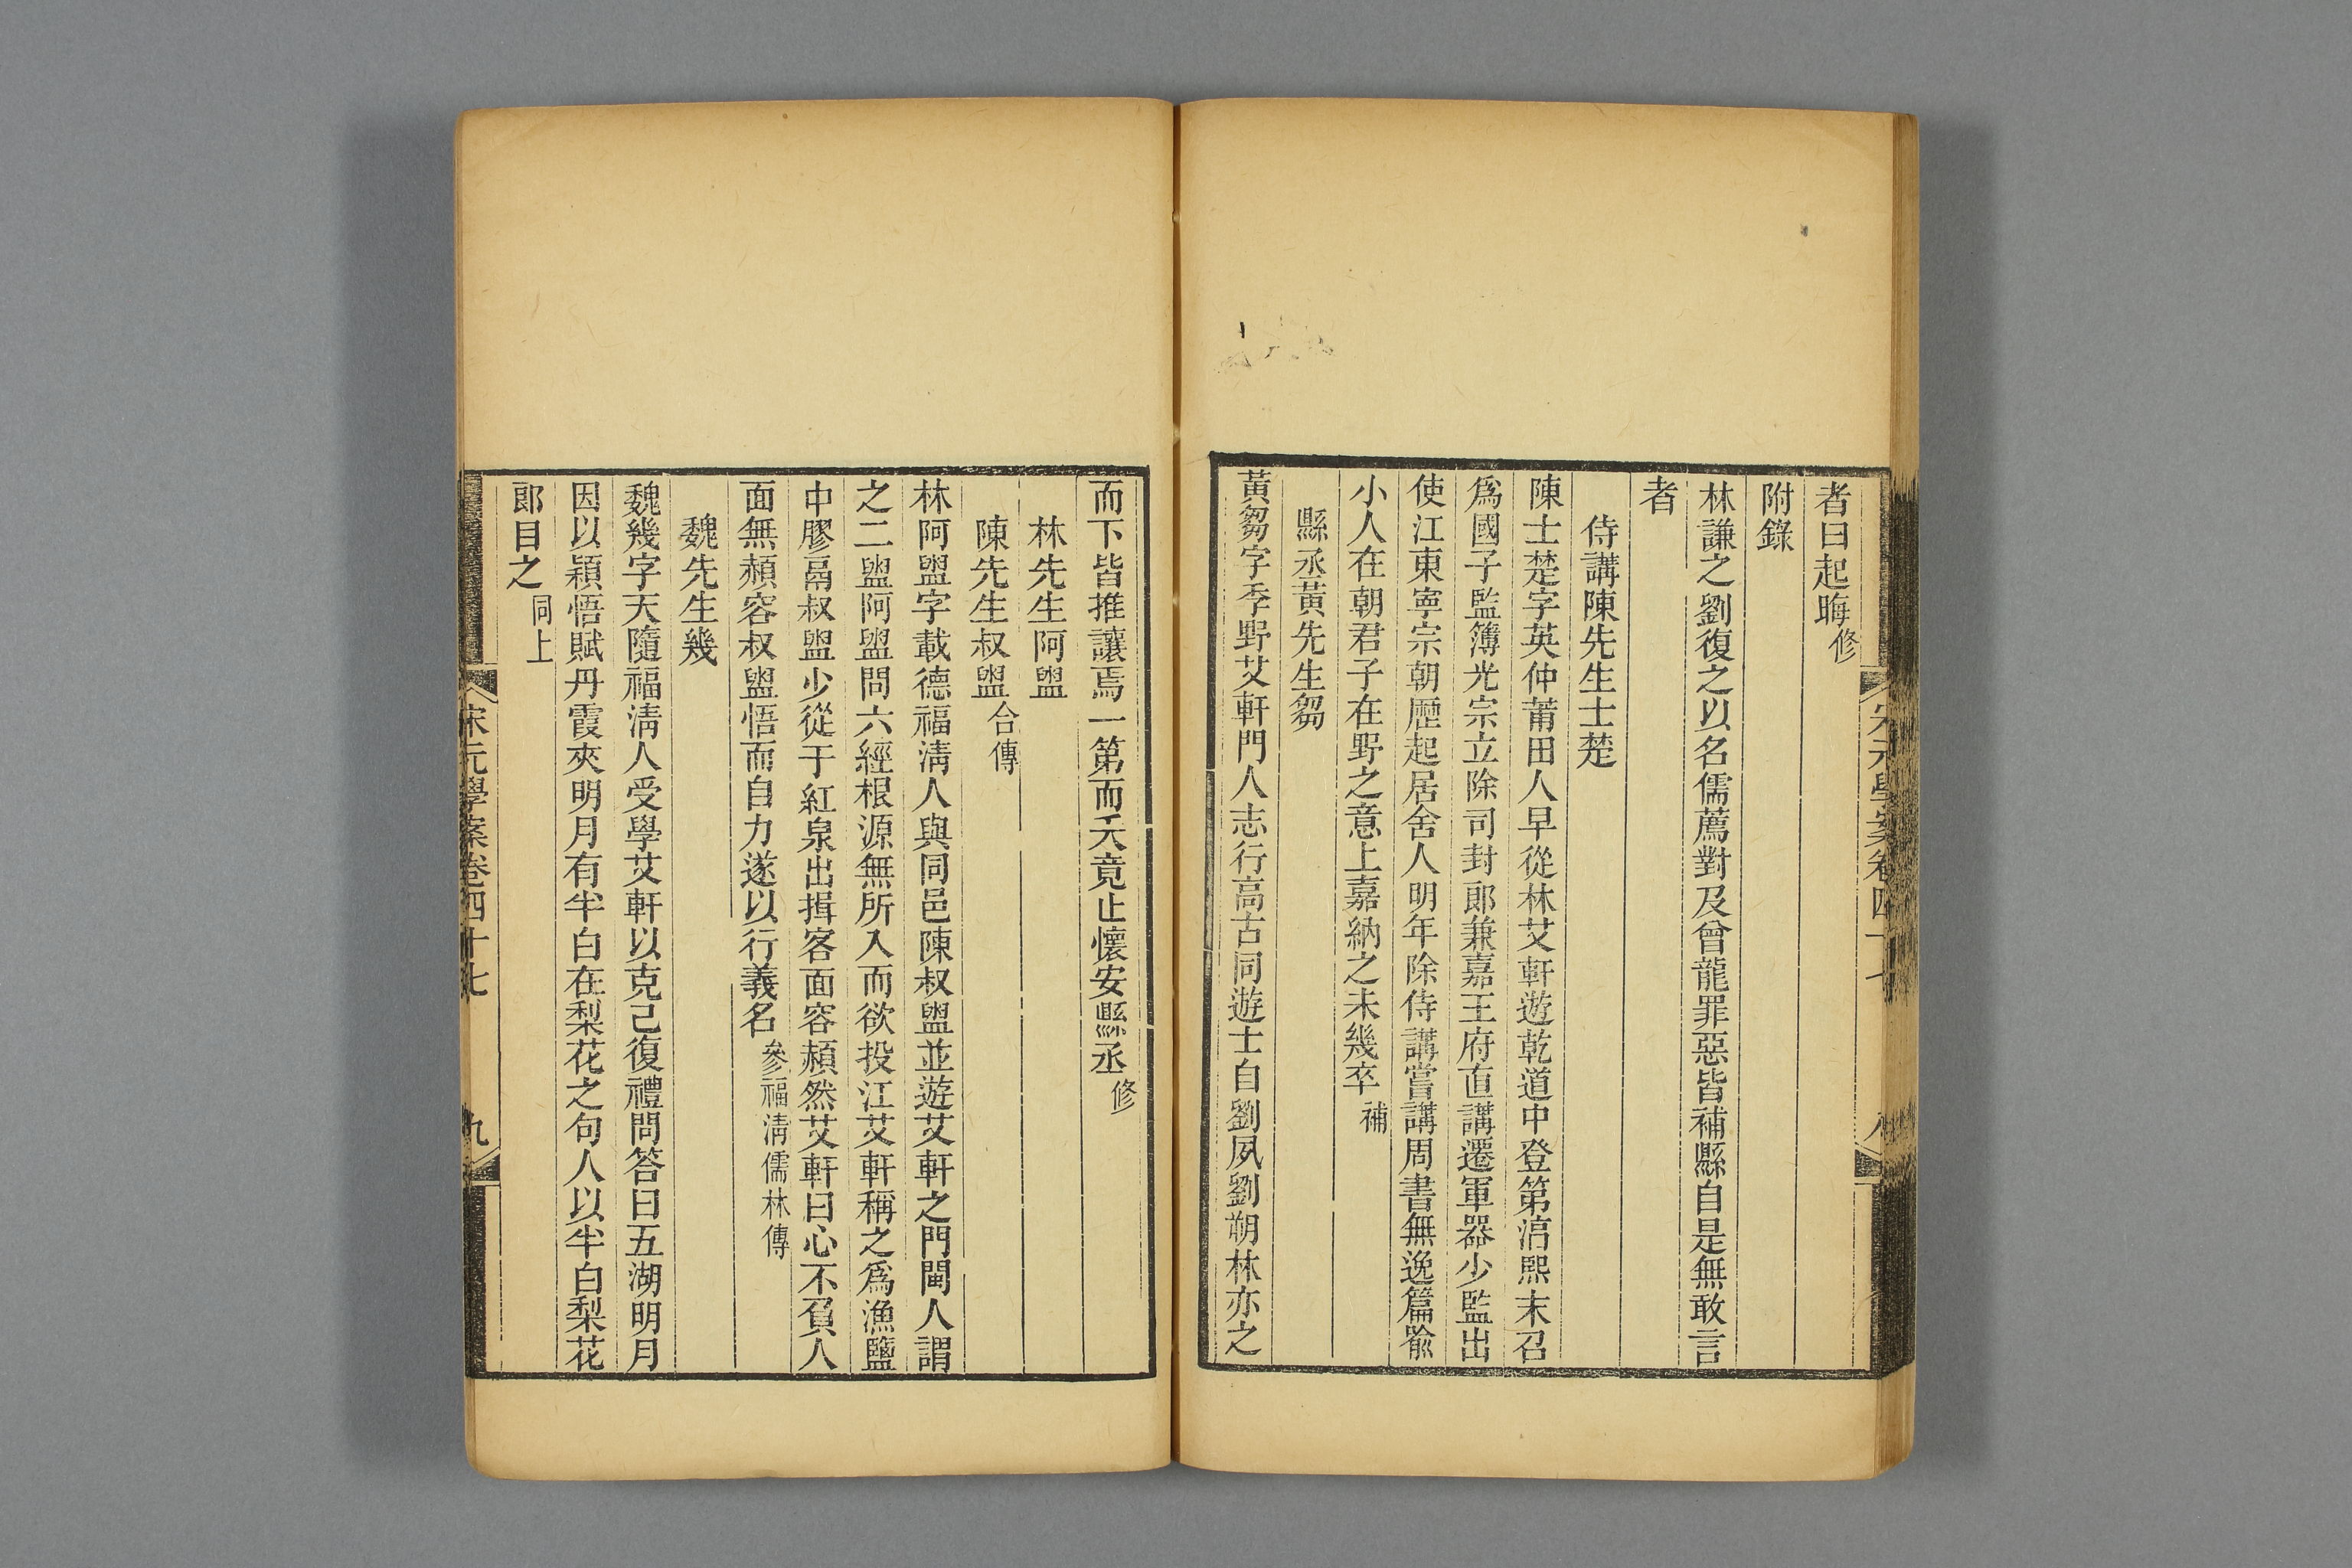 者曰起晦修
附錄
林謙之劉復之以名儒薦對及曾龍罪惡皆補縣自是無敢言
者
侍講陳先生士楚
陳士楚字英仲莆田人早從林艾軒遊乾道中登第淳熙末召
爲國子監簿光宗立除司封郎兼嘉王府直講遷軍器少監出
使江東寧宗朝歷起居舍人明年除侍講嘗講周書無逸篇喻
小人在朝君子在野之意上嘉納之未幾卒補
縣丞黃先生芻
黃芻字季野艾軒門人志行高古同遊士自劉夙劉朔林亦之
宋元學案卷四十七 八
而下皆推讓焉一第而夭竟止懷安縣丞修
林先生阿盥
陳先生叔盥合傳
林阿盥字載德福清人與同邑陳叔盥並遊艾軒之門閩人謂
之二盥阿盥問六經根源無所入而欲投江艾軒稱之爲漁鹽
中膠鬲叔盥少從于紅泉出揖客面容頳然艾軒曰心不負人
面無頳容叔盥悟而自力遂以行義名參福清儒林傳
魏先生幾
魏幾字天隨福清人受學艾軒以克己復禮問答曰五湖明月
因以穎悟賦丹霞夾明月有半白在梨花之句人以半白梨花
郎目之同上
宋元學案卷四十七 九